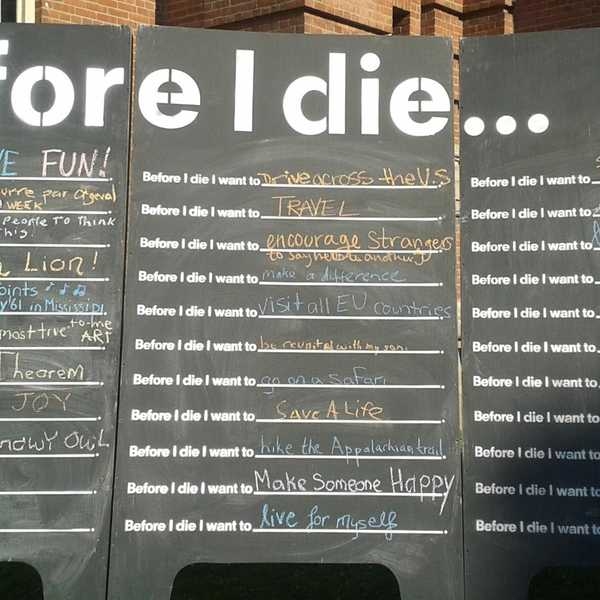 fore I die...
E FUN!
WEEK
PEOPLE TO THINK
THIS!
Lion!
oints
y 61 in Mississippi
most true to me
ART
Theorem
JOY
SNOWY OWL
Before I die I want to Drive across the U.S
Before I die I want to TRAVEL
Before I die I want to encourage Strangers
to say hello to another
Before I die I want to make a difference
Before I die I want to visit all EU countries
Before I die I want to be reunited with my son.
Before I die I want to go on a safari
Before I die I want to SAVE A Life
Before I die I want to hike the Appalachian trail
Before I die I want to Make Someone Happy
Before I die I want to live for myself
Before I die I want to
Before I die I want to
Before I die I want to
Before I die I want to
Before I die I want to
Before I die I want to
Before I die I want to
Before I die I want to
Before I die I want to
Before I die I want to
Before I die I want to